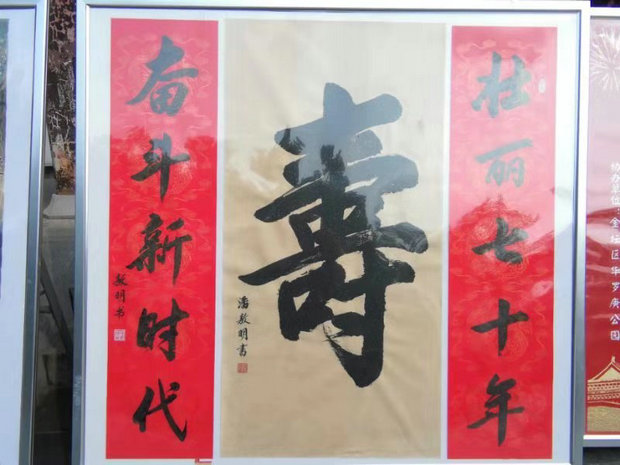 壮丽七十年
壽
潘敖明書
奋斗新时代
敖明书
协办单位：金坛区华罗庚公园